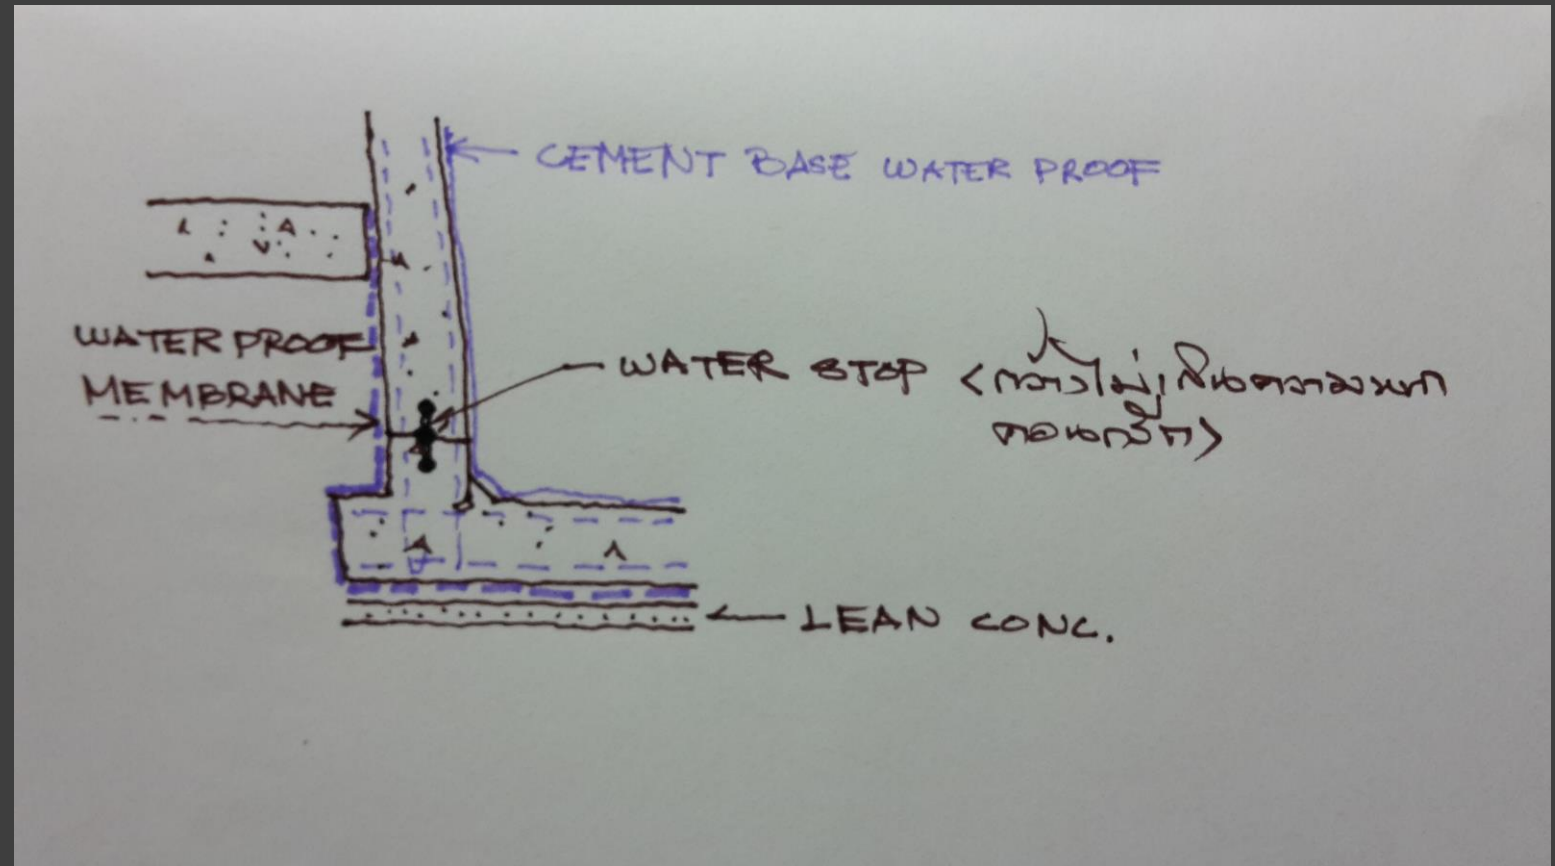 CEMENT BASE WATER PROOF
WATER PROOF
MEMBRANE
WATER STOP (กว้างไม่เกินความหนา
คอนกรีต)
LEAN CONC.